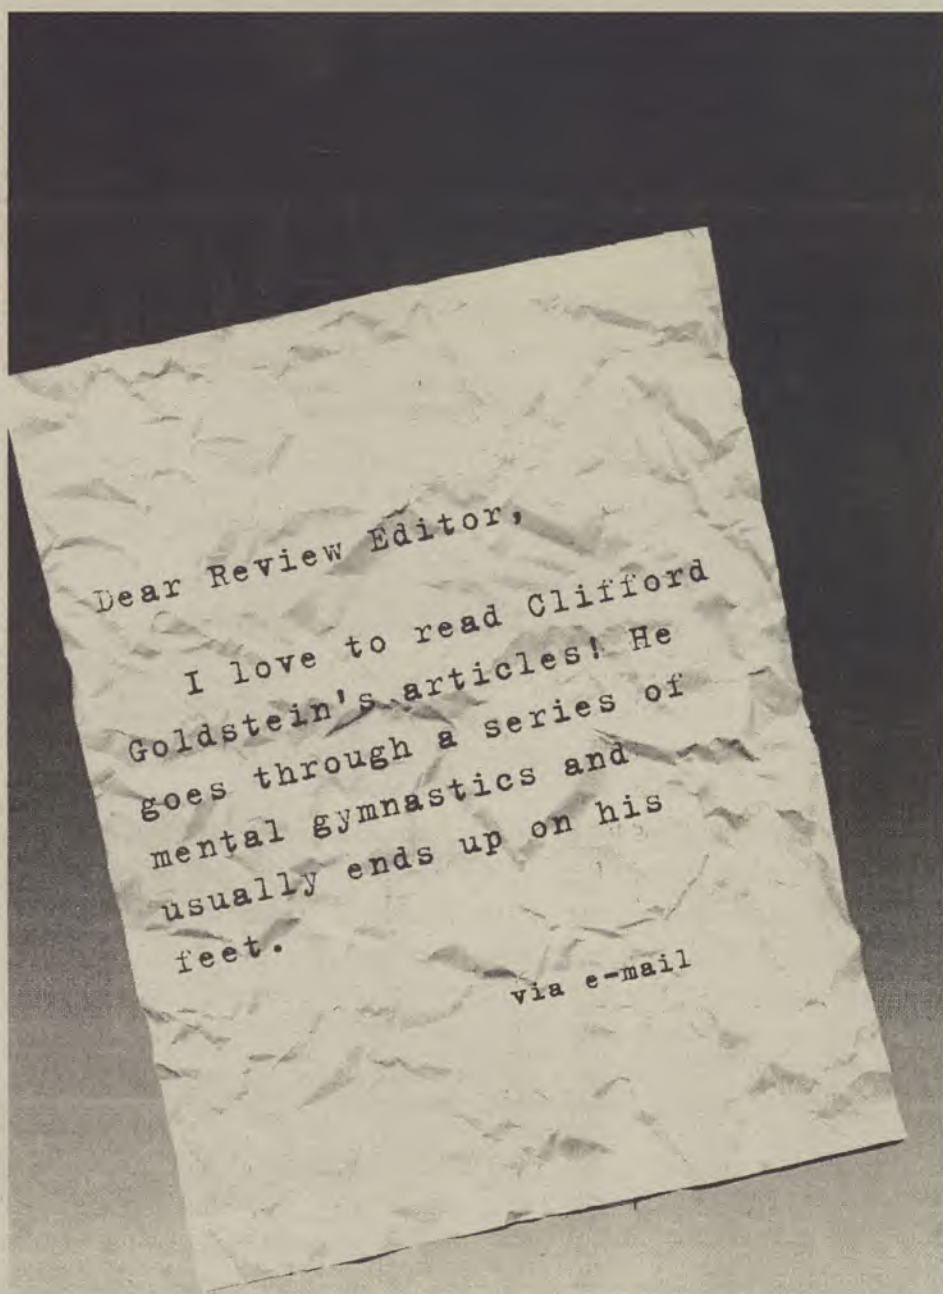 Dear Review Editor,
I love to read Clifford
Goldstein's articles! He
goes through a series of
mental gymnastics and
usually ends up on his
feet.
via e-mail